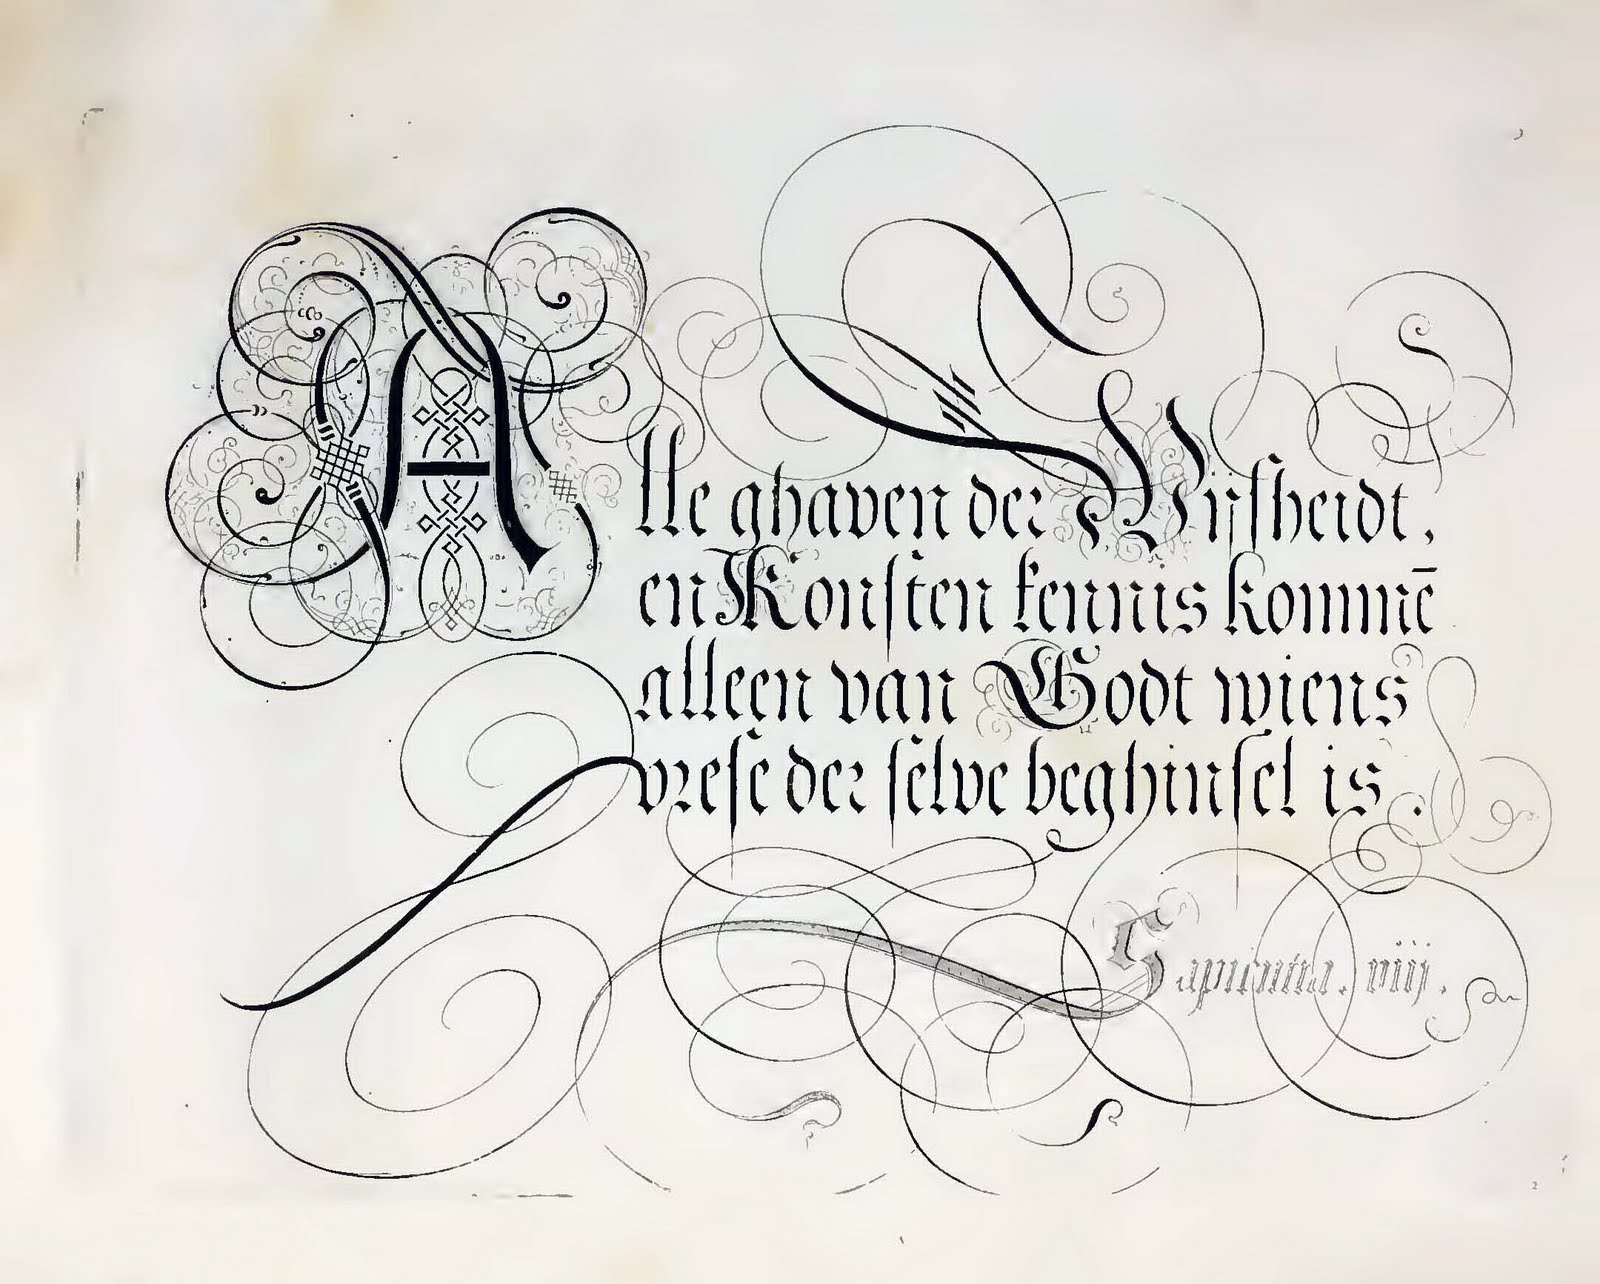 Alle ghaven der Wijsheidt,
en Konsten kennis kommē
alleen van Godt wiens
vrese der selve beghinsel is.
Sapientia. viij.
2